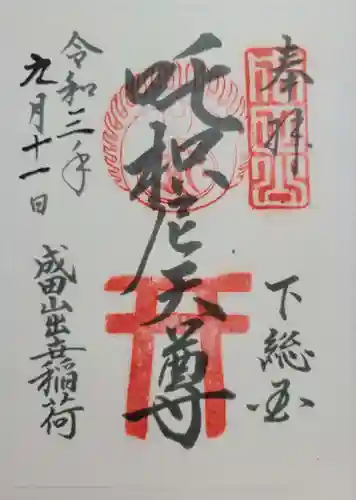 奉拝
下総国
吒枳尼天尊
令和三年
九月十一日
成田山出世稲荷